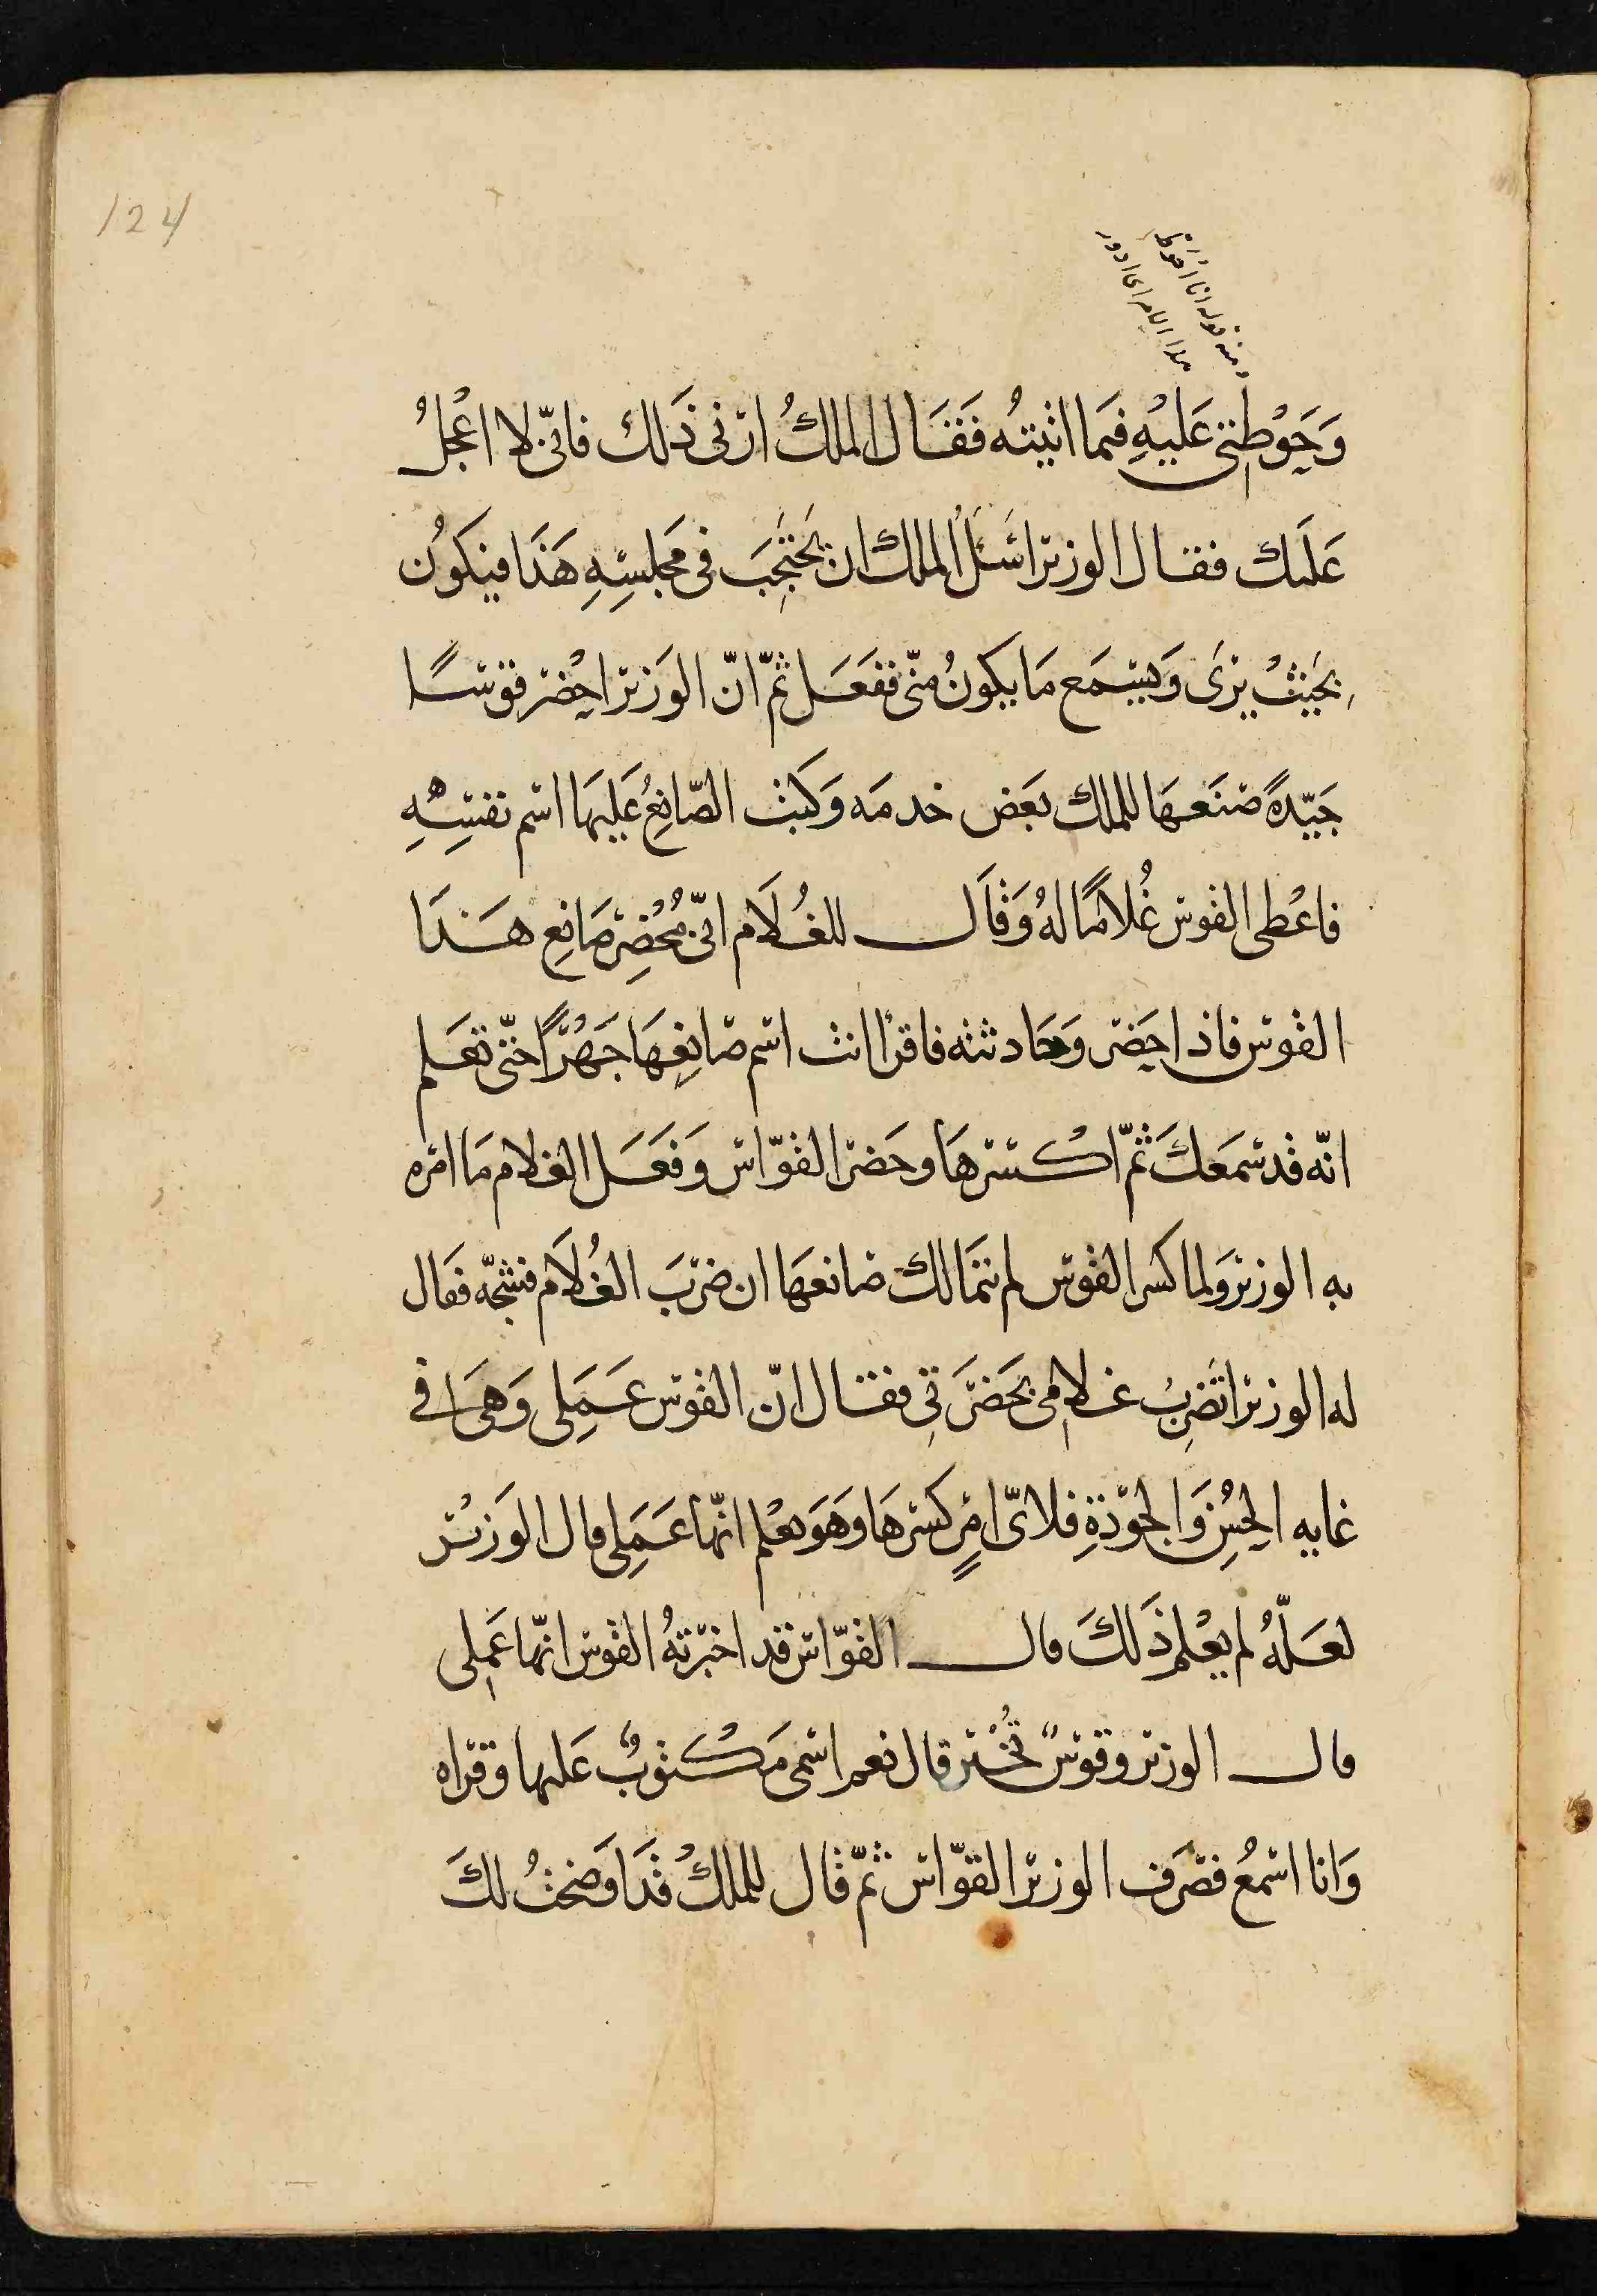 124
ومنه قوله انا احوط
هذا الامر اى ادور
وَحَوْطِتى عَليْهِ فيمَا اتيتُه فَقَال الملكُ ارنى ذَلك فانّى لا اعْجلُ
عَلَيك فقال الوزير اسْئَلُ الملك ان يَحْتَجِبَ فى مَجلسِهِ هَذَا فيكونُ
بحَيثُ يرَى وَيَسْمَع مَا يكونُ منّى ففَعَل ثمّ انّ الوَزير احْضر قوسًا
جَيّدةً صنَعهَا للملك بعَض خدمَه وَكتبَ الصّانعُ عَليهَا اسْم نفسِهِ
فاعْطى القوس غُلامًا لهُ وَقَال للغُلَام انّى مُحْضِر صَانِع هَذَا
القوس فاذا حَضَر وَحَادثته فاقرأ انت اسْم صَانِعِهَا جَهْرًا حتّى تعَلم
انّه قد سَمعَكَ ثمّ اكْسرهَا وحَضر القوّاس وَفعَل الغلام مَا امَره
به الوزير ولما كسر القوس لم يتمَالك صَانعهَا ان ضربَ الغُلَام فشجّه فقَال
له الوزير اتَضرِبُ غلامى بحَضرَتِى فقال انّ القوس عَمَلِى وَهىَ فى
غايه الحُسْنِ وَالجَوْدَةِ فلاىّ امرٍ كسَرهَا وهَوَ يعْلم انّهَا عَمَلِى قال الوَزير
لعَلّهُ لم يعْلم ذَلكَ قال القوّاس قد اخبَرتهُ القوس انّها عَمَلِى
قال الوزير وقوسٌ تُخْبر قال نعم اسْمى مَكْتوبٌ عَليها وقرَاه
وَانا اسْمعُ فصَرَف الوزير القوّاس ثمّ قَال للملكْ قَد اوَضحْتُ لكَ